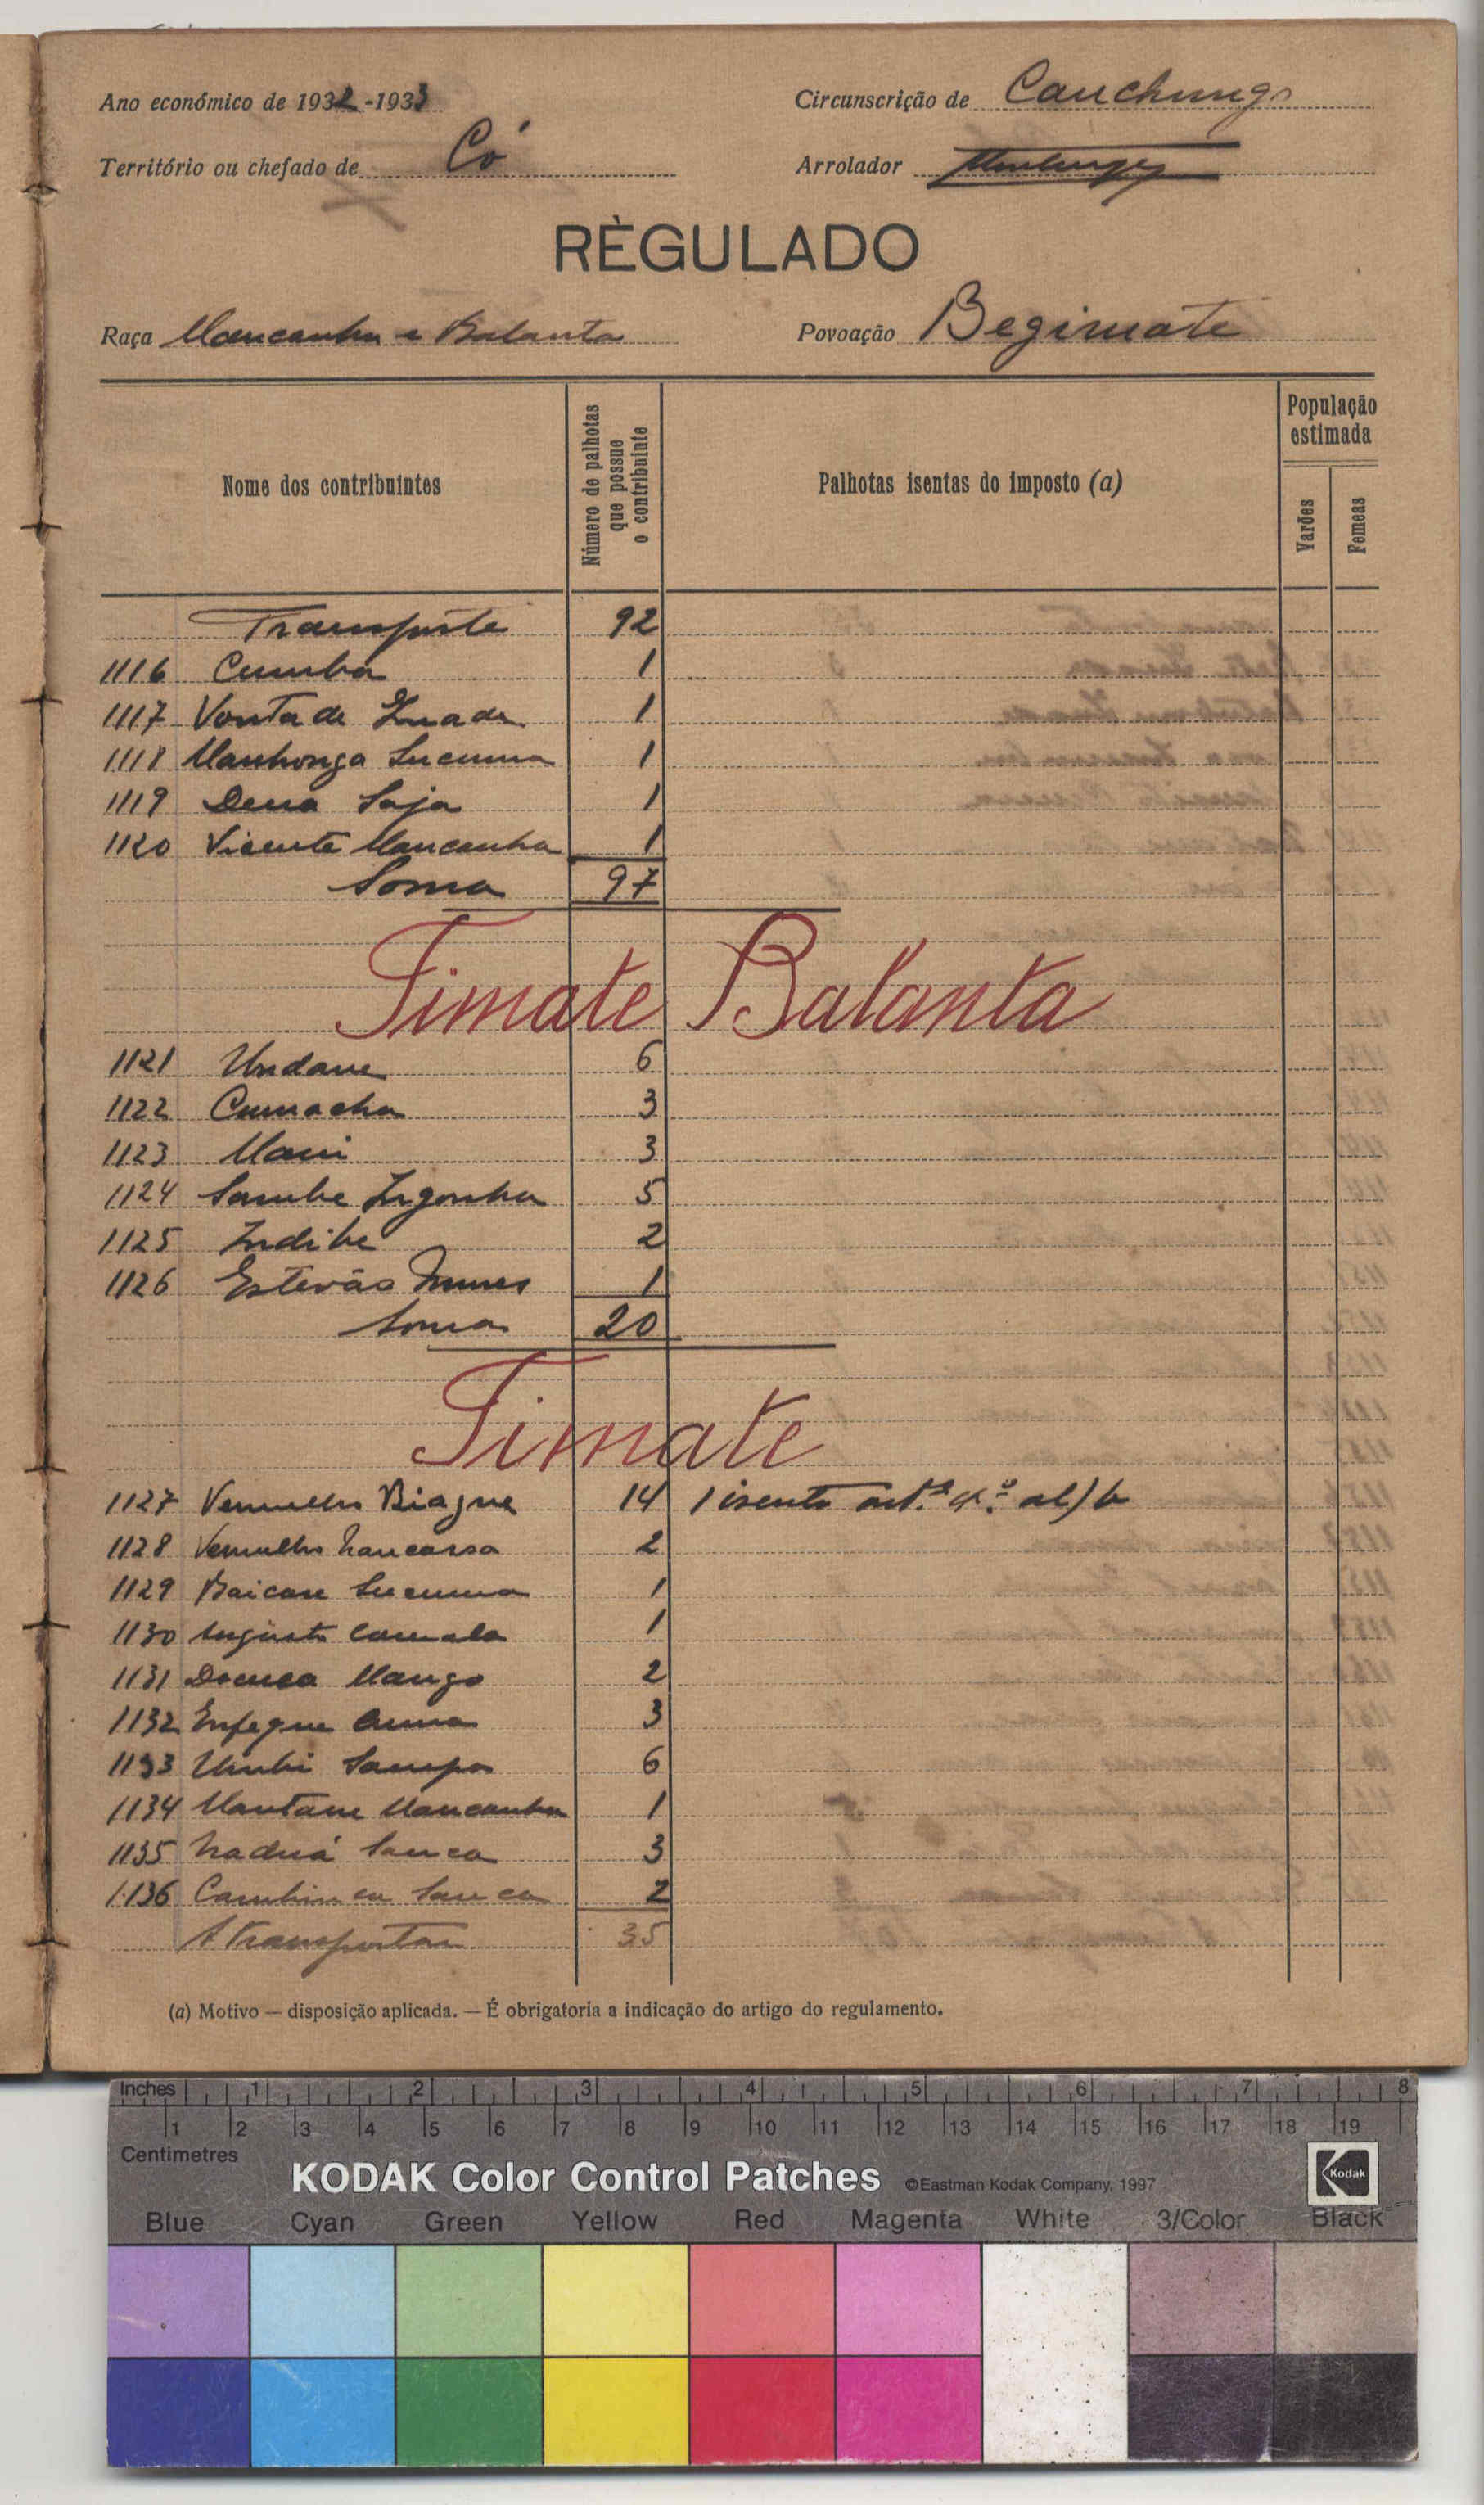 Ano económico de 1932-1933
Circunscrição de Cauchungo
Território ou chefado de Có
Arrolador
RÈGULADO
Raça Mancanha e Balanta
Povoação Begimate
Nome dos contribuintes
Número de palhotas que possue o contribuinte
Palhotas isentas do imposto (a)
População estimada
Varões
Femeas
Transporte 92
1116 Cumba 1
1117 Vontade 1
1118 Manhonga Sucuma 1
1119 Dena Saja 1
1120 Vicente Mancanha 1
Soma 97
Timate Balanta
1121 Undane 6
1122 Cumacha 3
1123 3
1124 Sambe Ingonha 5
1125 Indibe 2
1126 Estevão Nunes 1
Soma 20
Timate
1127 Vermelho Biague 14 1 isento art.º 4.º al) b
1128 Vermelho Nancassa 2
1129 Baicase Sucuma 1
1130 Augusto 1
1131 Mango 2
1132 3
1133 Sampa 6
1134 Mantane Mancanha 1
1135 Naduá Sanca 3
1136 Sanca 2
A transportar 35
(a) Motivo — disposição aplicada. — É obrigatoria a indicação do artigo do regulamento.
Inches 1 2 3 4 5 6 7 8
1 2 3 4 5 6 7 8 9 10 11 12 13 14 15 16 17 18 19
Centimetres
KODAK Color Control Patches ©Eastman Kodak Company, 1997 Kodak
Blue Cyan Green Yellow Red Magenta White 3/Color Black